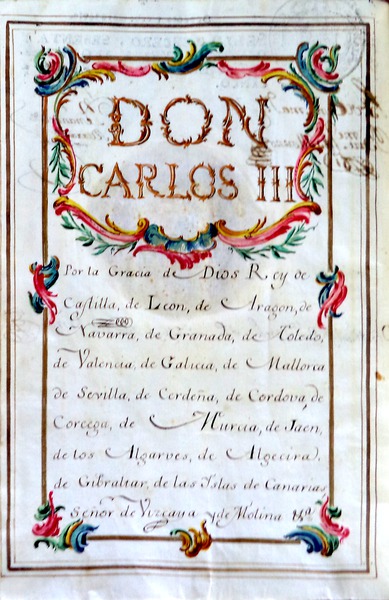 DON
CARLOS III
Por la Gracia de Dios Rey de
Castilla, de Leon, de Aragon, de
Navarra, de Granada, de Toledo,
de Valencia, de Galicia, de Mallorca
de Sevilla, de Cerdeña, de Cordova, de
Corcega, de Murcia, de Jaen,
de los Algarves, de Algecira.
de Gibraltar, de las Islas de Canarias,
Señor de Vizcaya y de Molina &ª